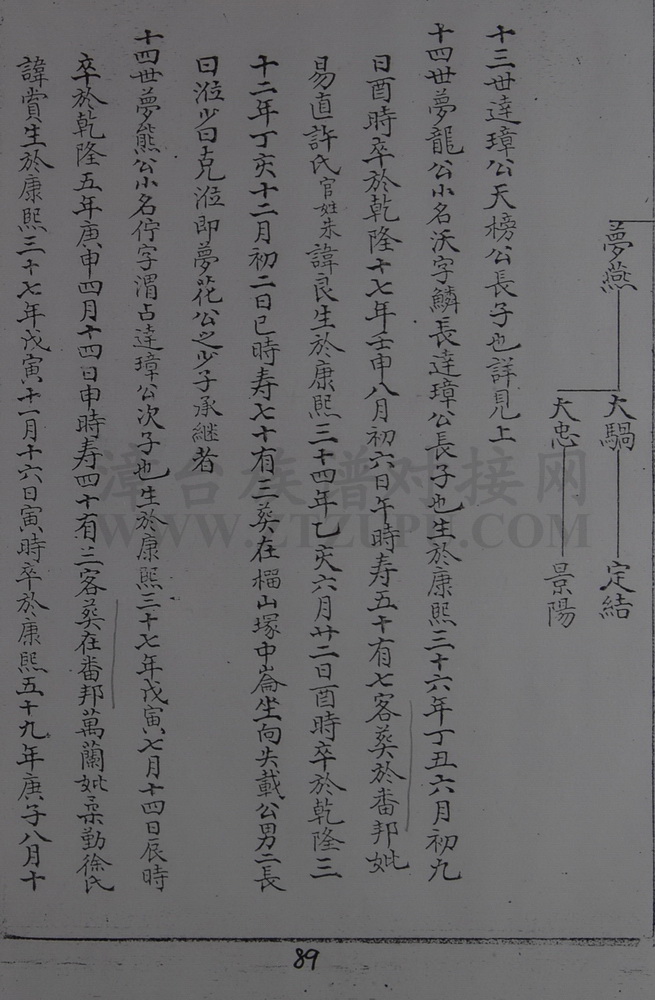 夢燕
大騧 定結
大忠 景陽
十三世達璋公天榜公長子也詳見上
十四世夢龍公小名沃字鱗長達璋公長子也生於康熙三十六年丁丑六月初九
日酉時卒於乾隆十七年壬申八月初六日午時寿五十有七客葵於番邦妣
易直許氏官姓朱諱良生於康熙三十四年乙亥六月廿二日酉時卒於乾隆三
十二年丁亥十二月初二日巳時寿七十有三葵在榴山塚中崙坐向失載公男二長
曰涖少曰克涖即夢花公之少子承継者
十四世夢熊公小名佇字渭占達璋公次子也生於康熙三十七年戊寅七月十四日辰時
卒於乾隆五年庚申四月十四日申時寿四十有三客葵在番邦萬蘭妣柔勤徐氏
諱賞生於康熙三十七年戊寅十一月十六日寅時卒於康熙五十九年庚子八月十
漳台族谱对接网
WWW.ZTZUPU.COM
89